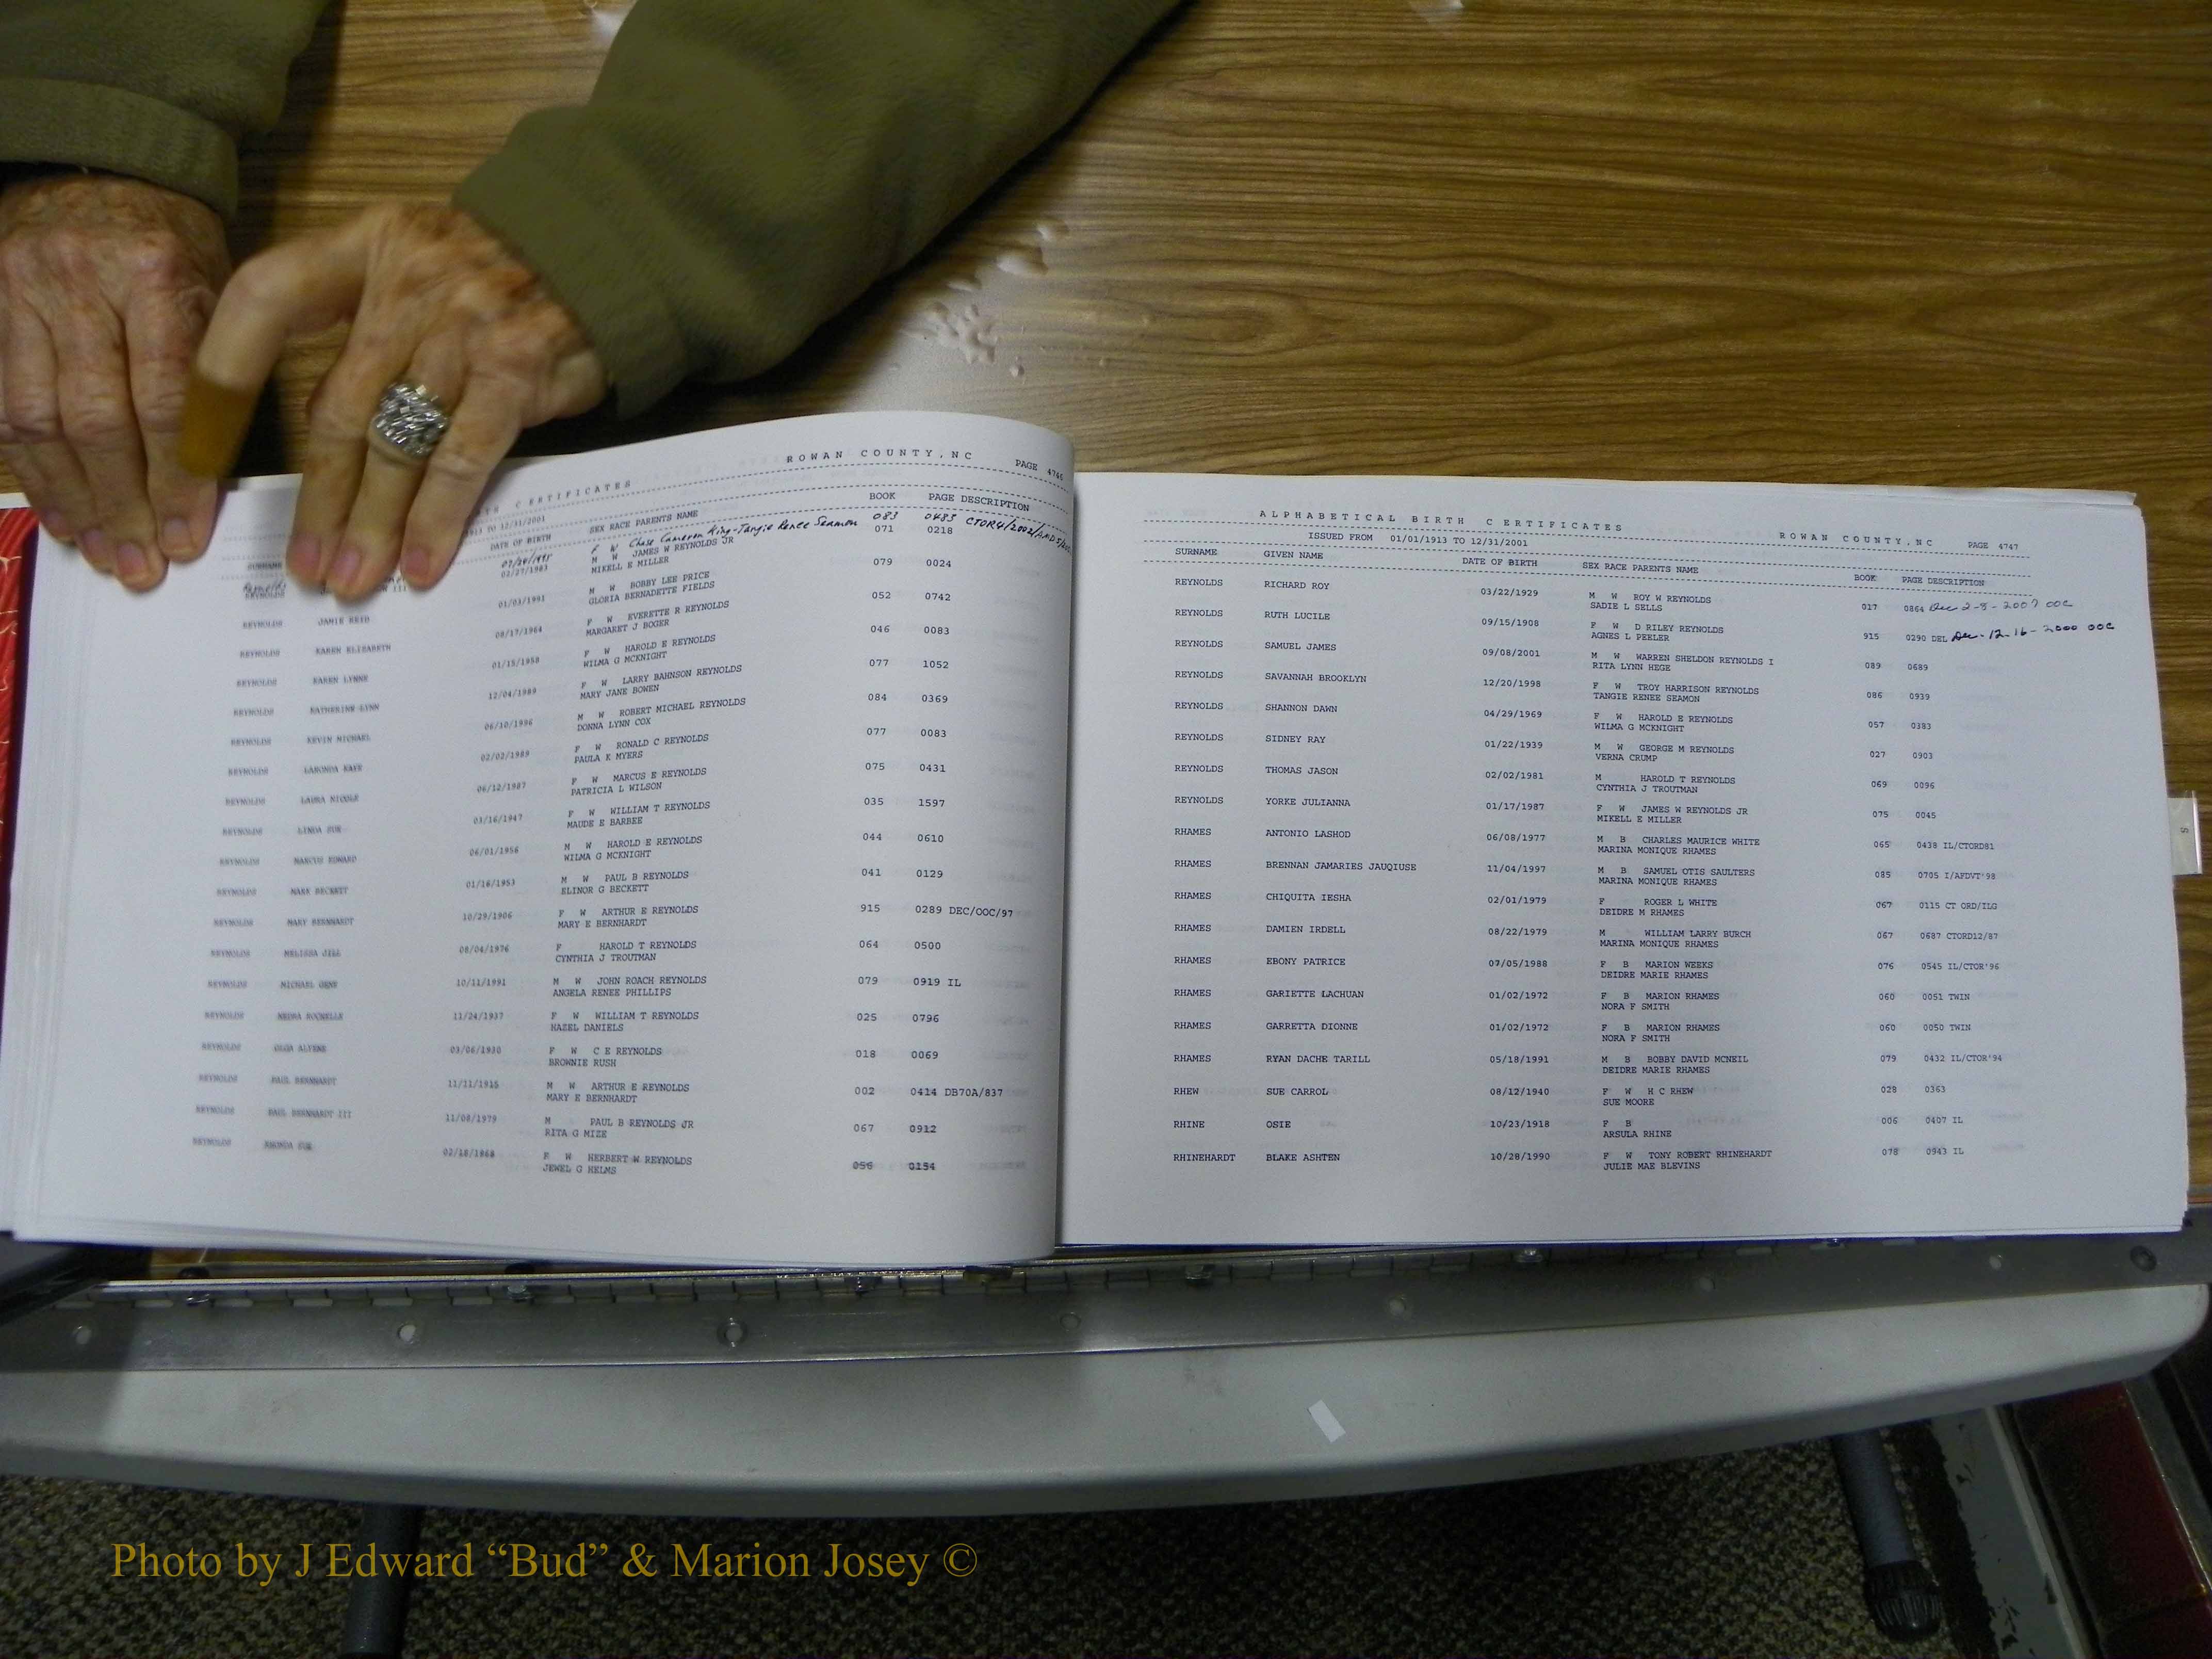 CERTIFICATES ROWAN COUNTY,NC PAGE 4746
1913 TO 12/31/2001
SURNAME DATE OF BIRTH SEX RACE PARENTS NAME BOOK PAGE DESCRIPTION
Reynolds F W Chase Cameron King-Tangie Renee Seamon 083 0483
REYNOLDS III 02/27/1983 M W JAMES W REYNOLDS JR 071 0218
MIKELL E MILLER
REYNOLDS JAMIE REID 01/03/1991 M W BOBBY LEE PRICE 079 0024
GLORIA BERNADETTE FIELDS
REYNOLDS KAREN ELIZABETH 08/17/1964 F W EVERETTE R REYNOLDS 052 0742
MARGARET J BOGER
REYNOLDS KAREN LYNNE 01/15/1958 F W HAROLD E REYNOLDS 046 0083
WILMA G MCKNIGHT
REYNOLDS KATHERINE LYNN 12/04/1989 F W LARRY BAHNSON REYNOLDS 077 1052
MARY JANE BOWEN
REYNOLDS KEVIN MICHAEL 06/10/1996 M W ROBERT MICHAEL REYNOLDS 084 0369
DONNA LYNN COX
REYNOLDS LARONDA KAYE 02/02/1989 F W RONALD C REYNOLDS 077 0083
PAULA K MYERS
REYNOLDS LAURA NICOLE 06/12/1987 F W MARCUS E REYNOLDS 075 0431
PATRICIA L WILSON
REYNOLDS LINDA SUE 03/16/1947 F W WILLIAM T REYNOLDS 035 1597
MAUDE E BARBEE
REYNOLDS MARCUS EDWARD 06/01/1956 M W HAROLD E REYNOLDS 044 0610
WILMA G MCKNIGHT
REYNOLDS MARK BECKETT 01/16/1953 M W PAUL B REYNOLDS 041 0129
ELINOR G BECKETT
REYNOLDS MARY BERNHARDT 10/29/1906 F W ARTHUR E REYNOLDS 915 0289 DEC/OOC/97
MARY E BERNHARDT
REYNOLDS MELISSA JILL 08/04/1976 F HAROLD T REYNOLDS 064 0500
CYNTHIA J TROUTMAN
REYNOLDS MICHAEL GENE 10/11/1991 M W JOHN ROACH REYNOLDS 079 0919 IL
ANGELA RENEE PHILLIPS
REYNOLDS NEDRA ROCHELLE 11/24/1937 F W WILLIAM T REYNOLDS 025 0796
HAZEL DANIELS
REYNOLDS OLGA ALVENE 03/06/1930 F W C E REYNOLDS 018 0069
BROWNIE RUSH
REYNOLDS PAUL BERNHARDT 11/11/1915 M W ARTHUR E REYNOLDS 002 0414 DB70A/837
MARY E BERNHARDT
REYNOLDS PAUL BERNHARDT III 11/08/1979 M PAUL B REYNOLDS JR 067 0912
RITA G MIZE
REYNOLDS RHONDA SUE 02/18/1968 F W HERBERT W REYNOLDS 056 0154
JEWEL G HELMS
ALPHABETICAL BIRTH CERTIFICATES ROWAN COUNTY,NC PAGE 4747
ISSUED FROM 01/01/1913 TO 12/31/2001
SURNAME GIVEN NAME DATE OF BIRTH SEX RACE PARENTS NAME BOOK PAGE DESCRIPTION
REYNOLDS RICHARD ROY 03/22/1929 M W ROY W REYNOLDS 017 0864 Dec 2-8-2007 OOC
SADIE L SELLS
REYNOLDS RUTH LUCILE 09/15/1908 F W D RILEY REYNOLDS 915 0290 DEL Dec-12-16-2000 OOC
AGNES L PEELER
REYNOLDS SAMUEL JAMES 09/08/2001 M W WARREN SHELDON REYNOLDS I 089 0689
RITA LYNN HEGE
REYNOLDS SAVANNAH BROOKLYN 12/20/1998 F W TROY HARRISON REYNOLDS 086 0939
TANGIE RENEE SEAMON
REYNOLDS SHANNON DAWN 04/29/1969 F W HAROLD E REYNOLDS 057 0383
WILMA G MCKNIGHT
REYNOLDS SIDNEY RAY 01/22/1939 M W GEORGE M REYNOLDS 027 0903
VERNA CRUMP
REYNOLDS THOMAS JASON 02/02/1981 M HAROLD T REYNOLDS 069 0096
CYNTHIA J TROUTMAN
REYNOLDS YORKE JULIANNA 01/17/1987 F W JAMES W REYNOLDS JR 075 0045
MIKELL E MILLER
RHAMES ANTONIO LASHOD 06/08/1977 M B CHARLES MAURICE WHITE 065 0438 IL/CTORD81
MARINA MONIQUE RHAMES
RHAMES BRENNAN JAMARIES JAUQIUSE 11/04/1997 M B SAMUEL OTIS SAULTERS 085 0705 I/AFDVT'98
MARINA MONIQUE RHAMES
RHAMES CHIQUITA IESHA 02/01/1979 F ROGER L WHITE 067 0115 CT ORD/ILG
DEIDRE M RHAMES
RHAMES DAMIEN IRDELL 08/22/1979 M WILLIAM LARRY BURCH 067 0687 CTORD12/87
MARINA MONIQUE RHAMES
RHAMES EBONY PATRICE 07/05/1988 F B MARION WEEKS 076 0545 IL/CTOR'96
DEIDRE MARIE RHAMES
RHAMES GARIETTE LACHUAN 01/02/1972 F B MARION RHAMES 060 0051 TWIN
NORA F SMITH
RHAMES GARRETTA DIONNE 01/02/1972 F B MARION RHAMES 060 0050 TWIN
NORA F SMITH
RHAMES RYAN DACHE TARILL 05/18/1991 M B BOBBY DAVID MCNEIL 079 0432 IL/CTOR'94
DEIDRE MARIE RHAMES
RHEW SUE CARROL 08/12/1940 F W H C RHEW 028 0363
SUE MOORE
RHINE OSIE 10/23/1918 F B 006 0407 IL
ARSULA RHINE
RHINEHARDT BLAKE ASHTEN 10/28/1990 F W TONY ROBERT RHINEHARDT 078 0943 IL
JULIE MAE BLEVINS
Photo by J Edward “Bud” & Marion Josey ©